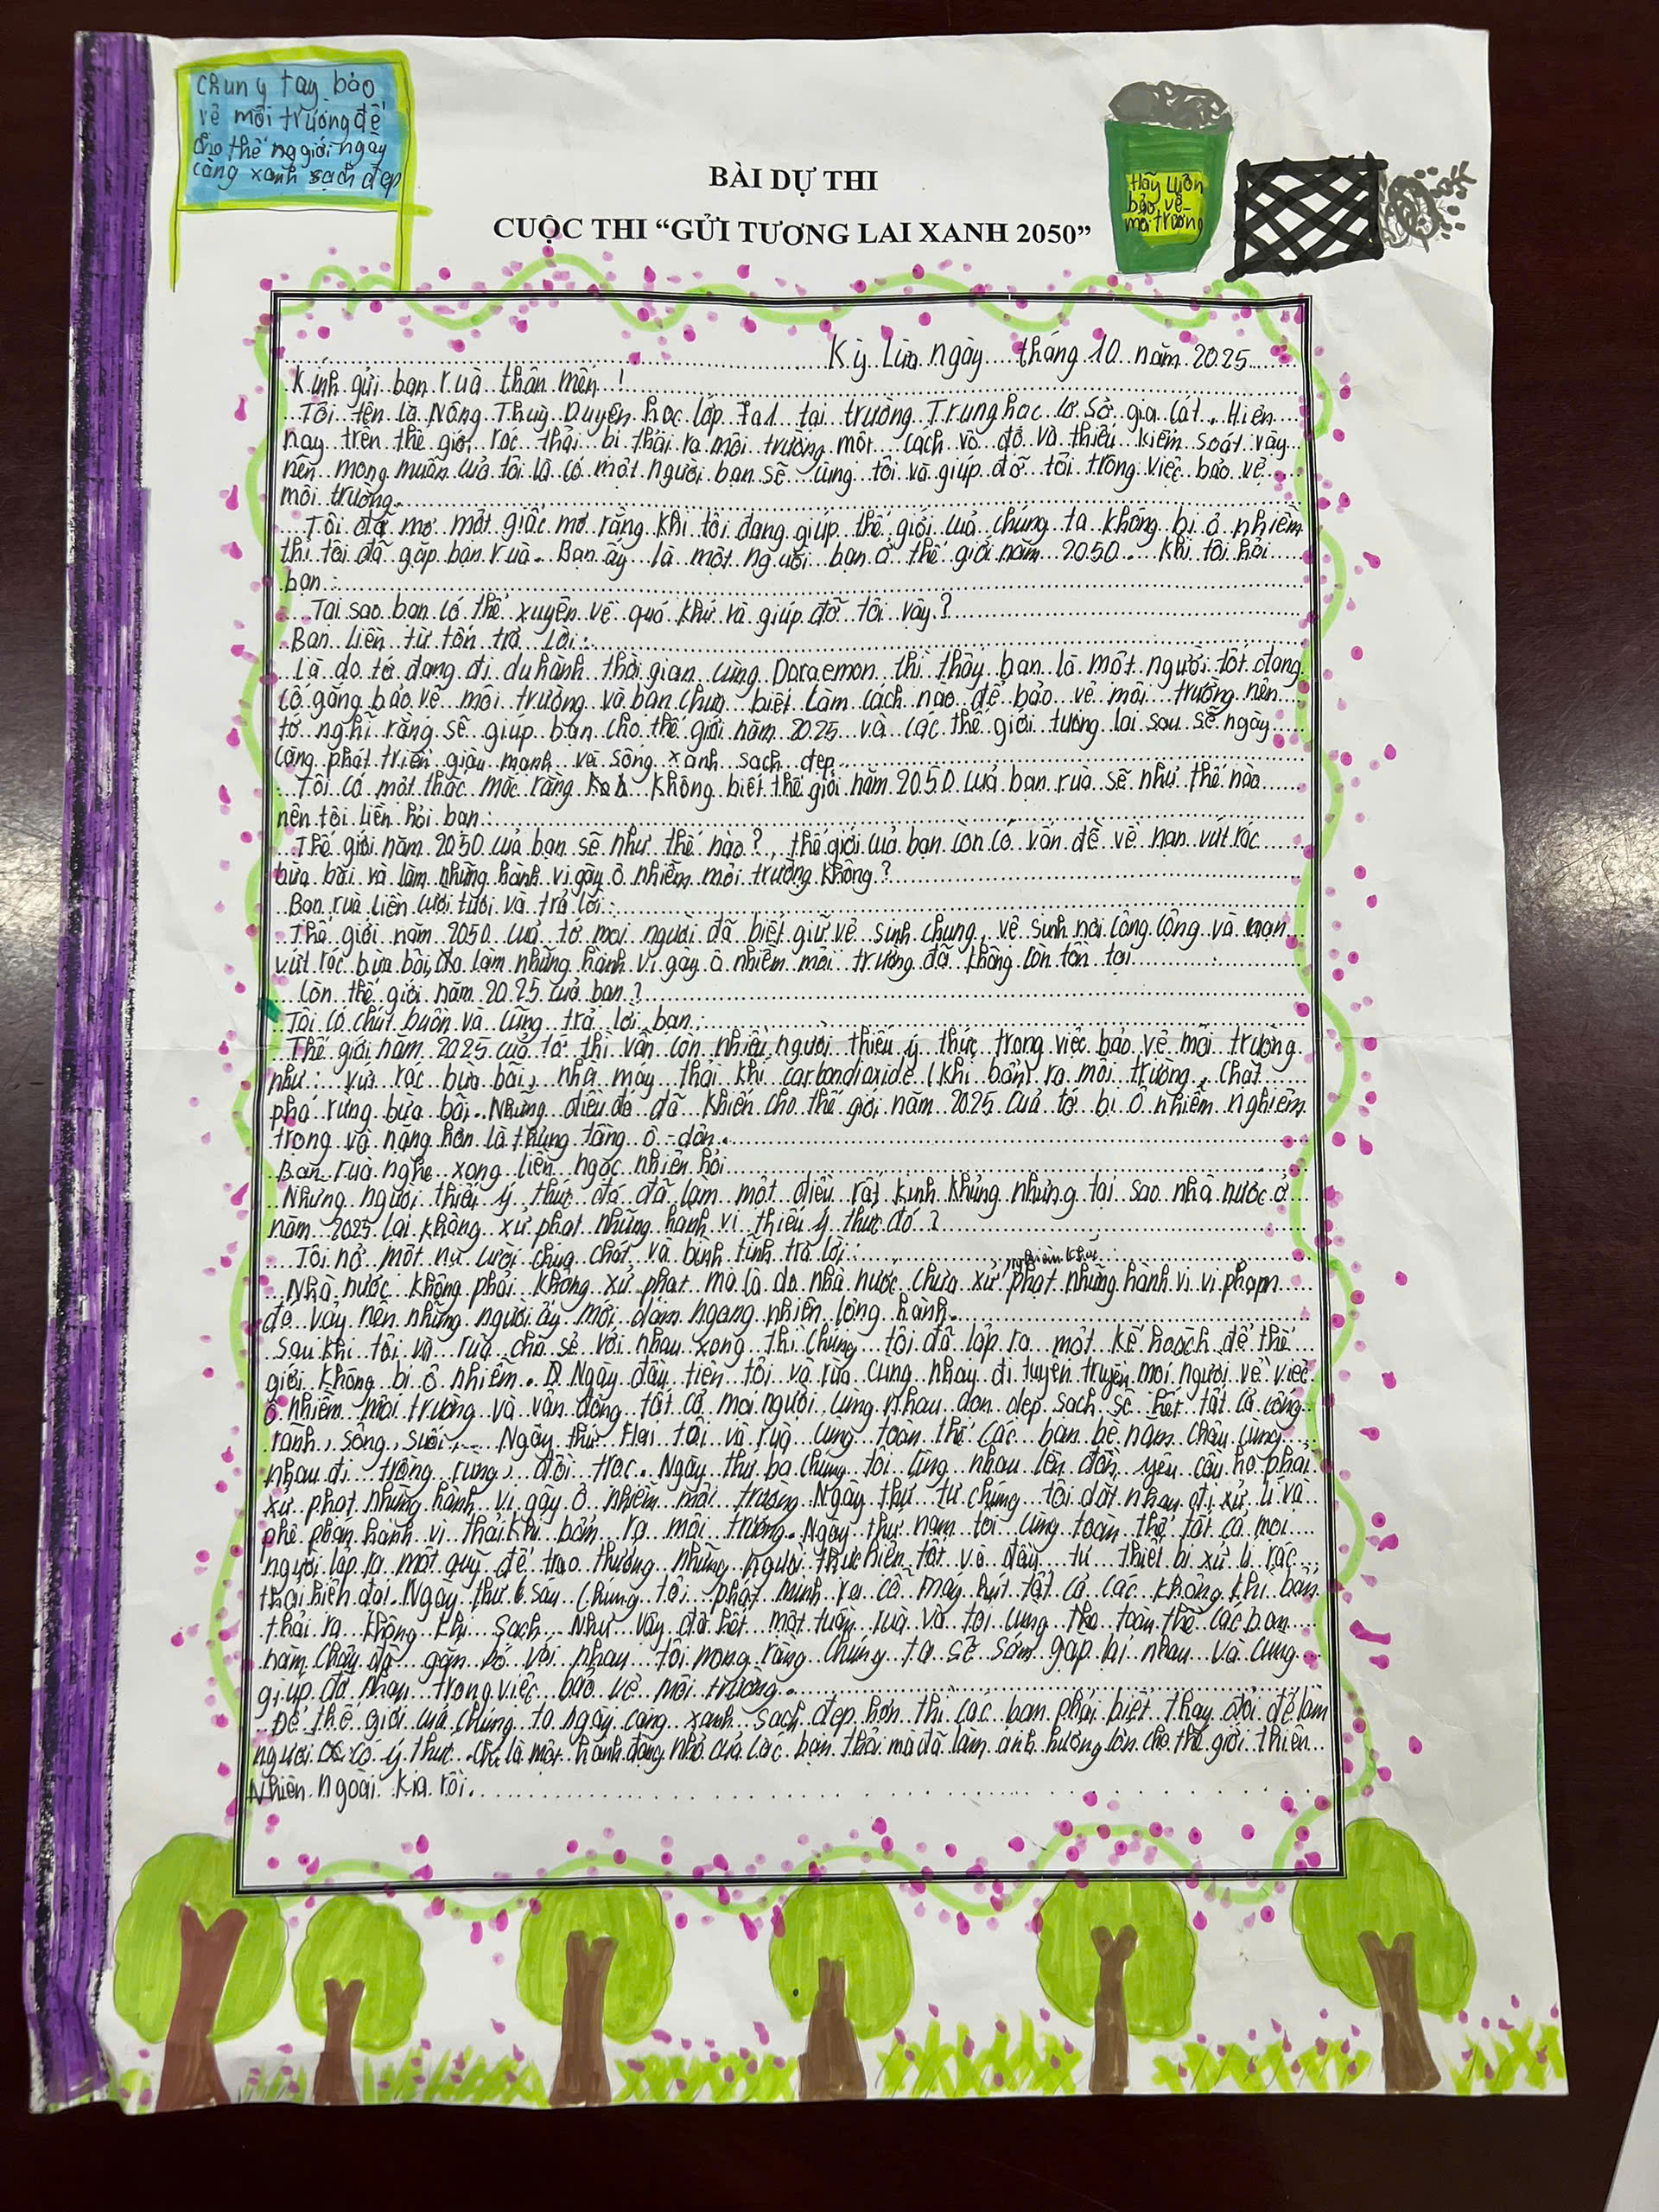 Chung tay bảo
vẻ môi trường để
cho thế nggiới ngày
càng xanh sạch đẹp
BÀI DỰ THI
CUỘC THI “GỬI TƯƠNG LAI XANH 2050”
Hãy luôn
bảo vệ
môi trường
Kỳ Lừa ngày.....tháng 10 năm 2025
Kính gửi bạn rùa thân mến !
Tôi tên là Nông Thuỳ Duyên học lớp 7a1 tại trường Trung học cơ Sở gia cát. Hiện
nay trên thế giới rác thải bị thải ra môi trường một cách vô độ và thiếu kiểm soát vậy
nên mong muốn của tôi là có một người bạn sẽ cùng tôi và giúp đỡ tôi trong việc bảo vệ
môi trường.
Tôi đã mơ một giấc mơ rằng khi tôi đang giúp thế giới của chúng ta không bị ô nhiễm
thì tôi đã gặp bạn rùa. Bạn ấy là một người bạn ở thế giới năm 2050. Khi tôi hỏi
bạn:
Tại sao bạn có thể xuyên về quá khứ và giúp đỡ tôi vậy?
Bạn liền từ tốn trả lời:
Là do tớ đang đi du hành thời gian cùng Doraemon thì thấy bạn là một người tốt đang
cố gắng bảo vệ môi trường và bạn chưa biết làm cách nào để bảo vệ môi trường nên
tớ nghĩ rằng sẽ giúp bạn cho thế giới năm 2025 và các thế giới tương lai sau sẽ ngày
càng phát triển giàu mạnh và sống xanh sạch đẹp.
Tôi có một thắc mắc rằng không biết thế giới năm 2050 của bạn rùa sẽ như thế nào
nên tôi liền hỏi bạn:
Thế giới năm 2050 của bạn sẽ như thế nào?, thế giới của bạn còn có vấn đề về nạn vứt rác
bừa bãi và làm những hành vi gây ô nhiễm môi trường không?
Bạn rùa liền cười tươi và trả lời:
Thế giới năm 2050 của tớ mọi người đã biết giữ vệ sinh chung, vệ sinh nơi công cộng và nạn
vứt rác bừa bãi, làm những hành vi gây ô nhiễm môi trường đã không còn tồn tại
Còn thế giới năm 2025 của bạn?
Tôi có chút buồn và cũng trả lời bạn:
Thế giới năm 2025 của tớ thì vẫn còn nhiều người thiếu ý thức trong việc bảo vệ môi trường
như: vứt rác bừa bãi, nhà máy thải khí carbondioxide (khí bẩn) ra môi trường, chặt
phá rừng bừa bãi. Những điều đó đã khiến cho thế giới năm 2025 của tớ bị ô nhiễm nghiêm
trọng và nặng hơn là thủng tầng ô-dôn.
Bạn rùa nghe xong liền ngạc nhiên hỏi
Những người thiếu ý thức đó đã làm một điều rất kinh khủng nhưng tại sao nhà nước ở
năm 2025 lại không xử phạt những hành vi thiếu ý thức đó?
Tôi nở một nụ cười chua chát và bình tĩnh trả lời:
nghiêm khắc
Nhà nước không phải không xử phạt mà là do nhà nước chưa xử phạt những hành vi vi phạm
đó vậy nên những người ấy mới dám ngang nhiên lộng hành.
Sau khi tôi và rùa chia sẻ với nhau xong thì chúng tôi đã lập ra một kế hoạch để thế
giới không bị ô nhiễm. Ngày đầu tiên tôi và rùa cùng nhau đi tuyên truyền mọi người về việc
ô nhiễm môi trường và vận động tất cả mọi người cùng nhau dọn dẹp sạch sẽ hết tất cả cống
rãnh, sông, suối,... Ngày thứ Hai tôi và rùa cùng toàn thể các bạn bè năm châu cùng
nhau đi trồng rừng, đồi trọc. Ngày thứ ba chúng tôi cùng nhau lên đồn yêu cầu họ phải
xử phạt những hành vi gây ô nhiễm môi trường Ngày thứ tư chúng tôi dắt nhau đi xử lí và
phê phán hành vi thải khí bẩn ra môi trường. Ngày thứ năm tôi cùng toàn thể tất cả mọi
người lập ra một quỹ để trao thưởng những người thực hiện tốt và đầu tư thiết bị xử lí rác
thải hiện đại. Ngày thứ 6 sáu chúng tôi phát minh ra cỗ máy hút tất cả các không khí bẩn
thải ra không khí sạch. Như vậy đã hết một tuần rùa và tôi cùng toàn thể các bạn
năm châu đã gắn bó với nhau tôi mong rằng chúng ta sẽ sớm gặp lại nhau và cùng
giúp đỡ nhau trong việc bảo vệ môi trường.
Để thế giới của chúng ta ngày càng xanh sạch đẹp hơn thì các bạn phải biết thay đổi để làm
người có ý thức. Chỉ là một hành động nhỏ của các bạn thôi mà đã làm ảnh hưởng lớn cho thế giới thiên
Nhiên ngoài kia rồi.